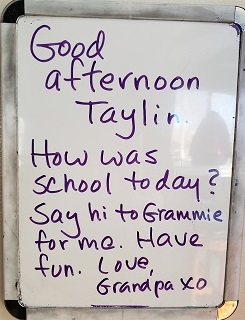 Good
afternoon
Taylin.
How was
school today?
Say hi to Grammie
for me. Have
fun. Love,
Grandpa xo